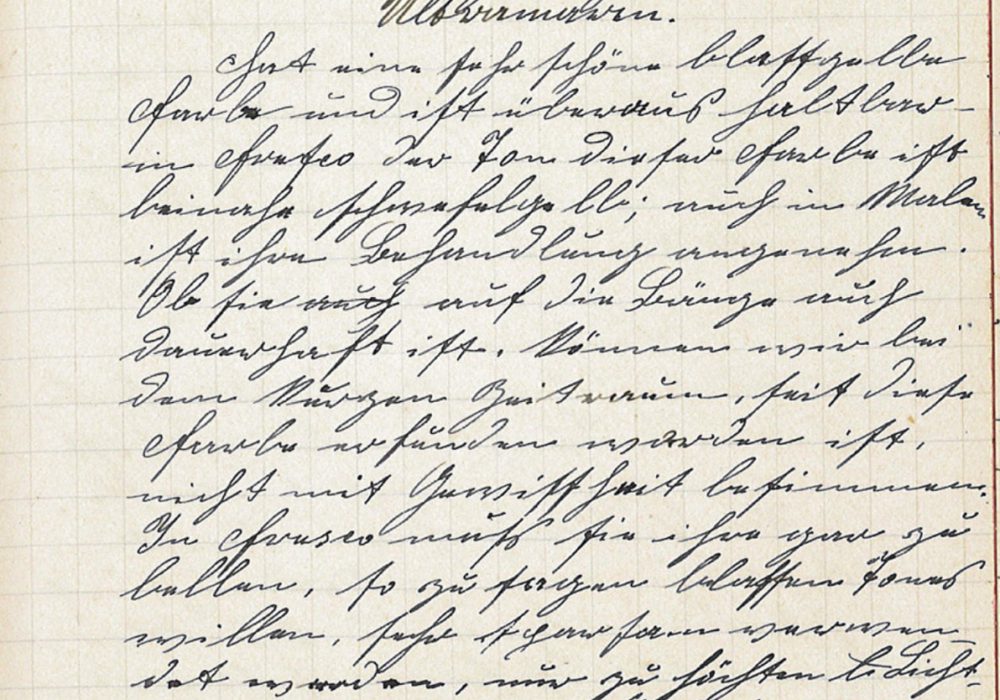 Ultramarin.
Hat eine sehr schöne blassgelbe
Farbe und ist überaus haltbar
in Fresco der Ton dieser Farbe ist
beinahe schwefelgelb; auch in Malen
ist ihre Behandlung angenehm.
Ob sie auch auf die Länge auch
dauerhaft ist. Können wir bei
dem Kurzen Zeitraum, seit diese
Farbe erfunden worden ist,
nicht mit Gewissheit bestimmen.
In Fresco muß sie ihre gar zu
hellen, so zu sagen blassen Tones
willen, sehr sparsam verwen-
det werden, nur zu höchten Licht-